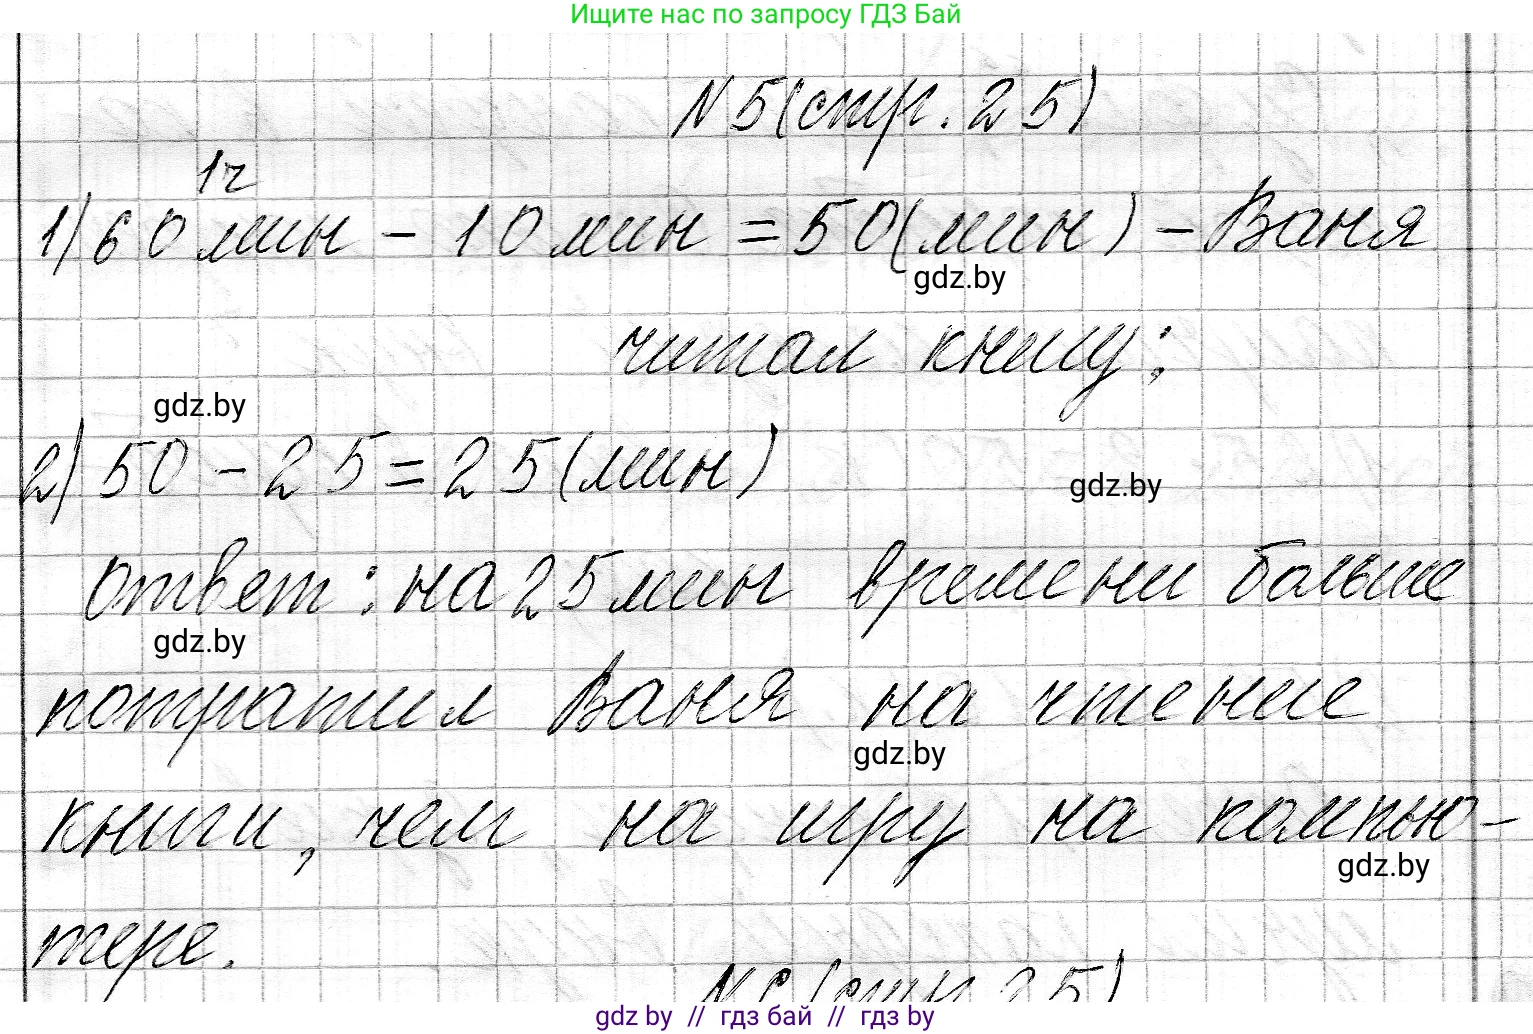 Ищите нас по запросу ГДЗ Бай
N5(стр. 25)
1ч
1) 60 мин - 10 мин = 50(мин) - Ваня
gdz.by
читал книгу;
gdz.by
2) 50 - 25 = 25(мин)
gdz.by
ответ: на 25 мин времени больше
gdz.by
потратил Ваня на чтение
gdz.by
книги, чем на игру на компью-
gdz.by
тере.
N6(стр. 25)
gdz by // гдз бай // гдз by